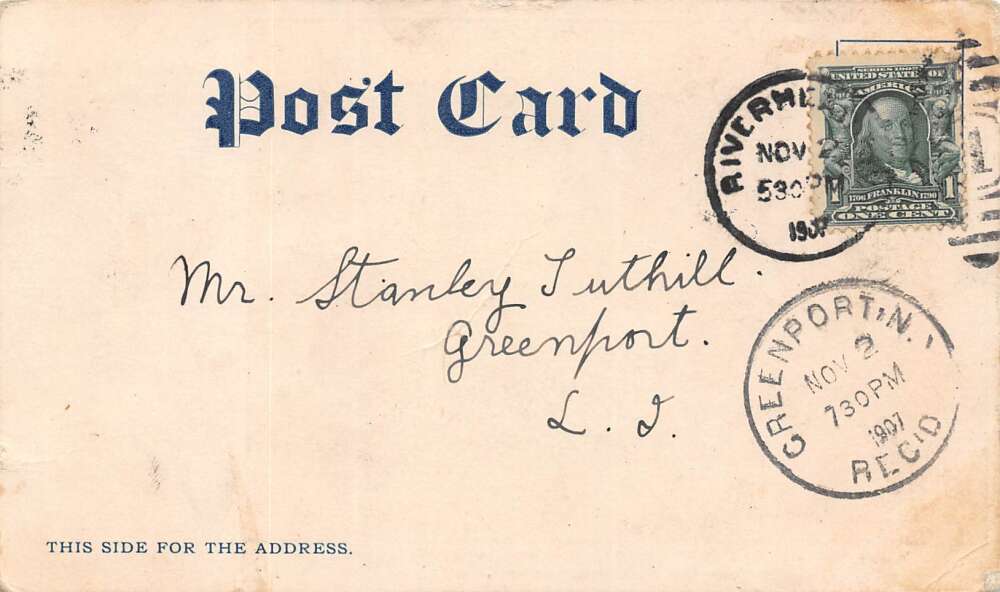 Post Card
SERIES 1902
UNITED STATES OF
AMERICA
1706 FRANKLIN 1790
POSTAGE
1 ONE CENT 1
RIVERHE
NOV 2
530PM
1907
Mr. Stanley Tuthill.
Greenport.
L. I.
GREENPORT, N.
NOV 2
730PM
1907
REC'D
THIS SIDE FOR THE ADDRESS.